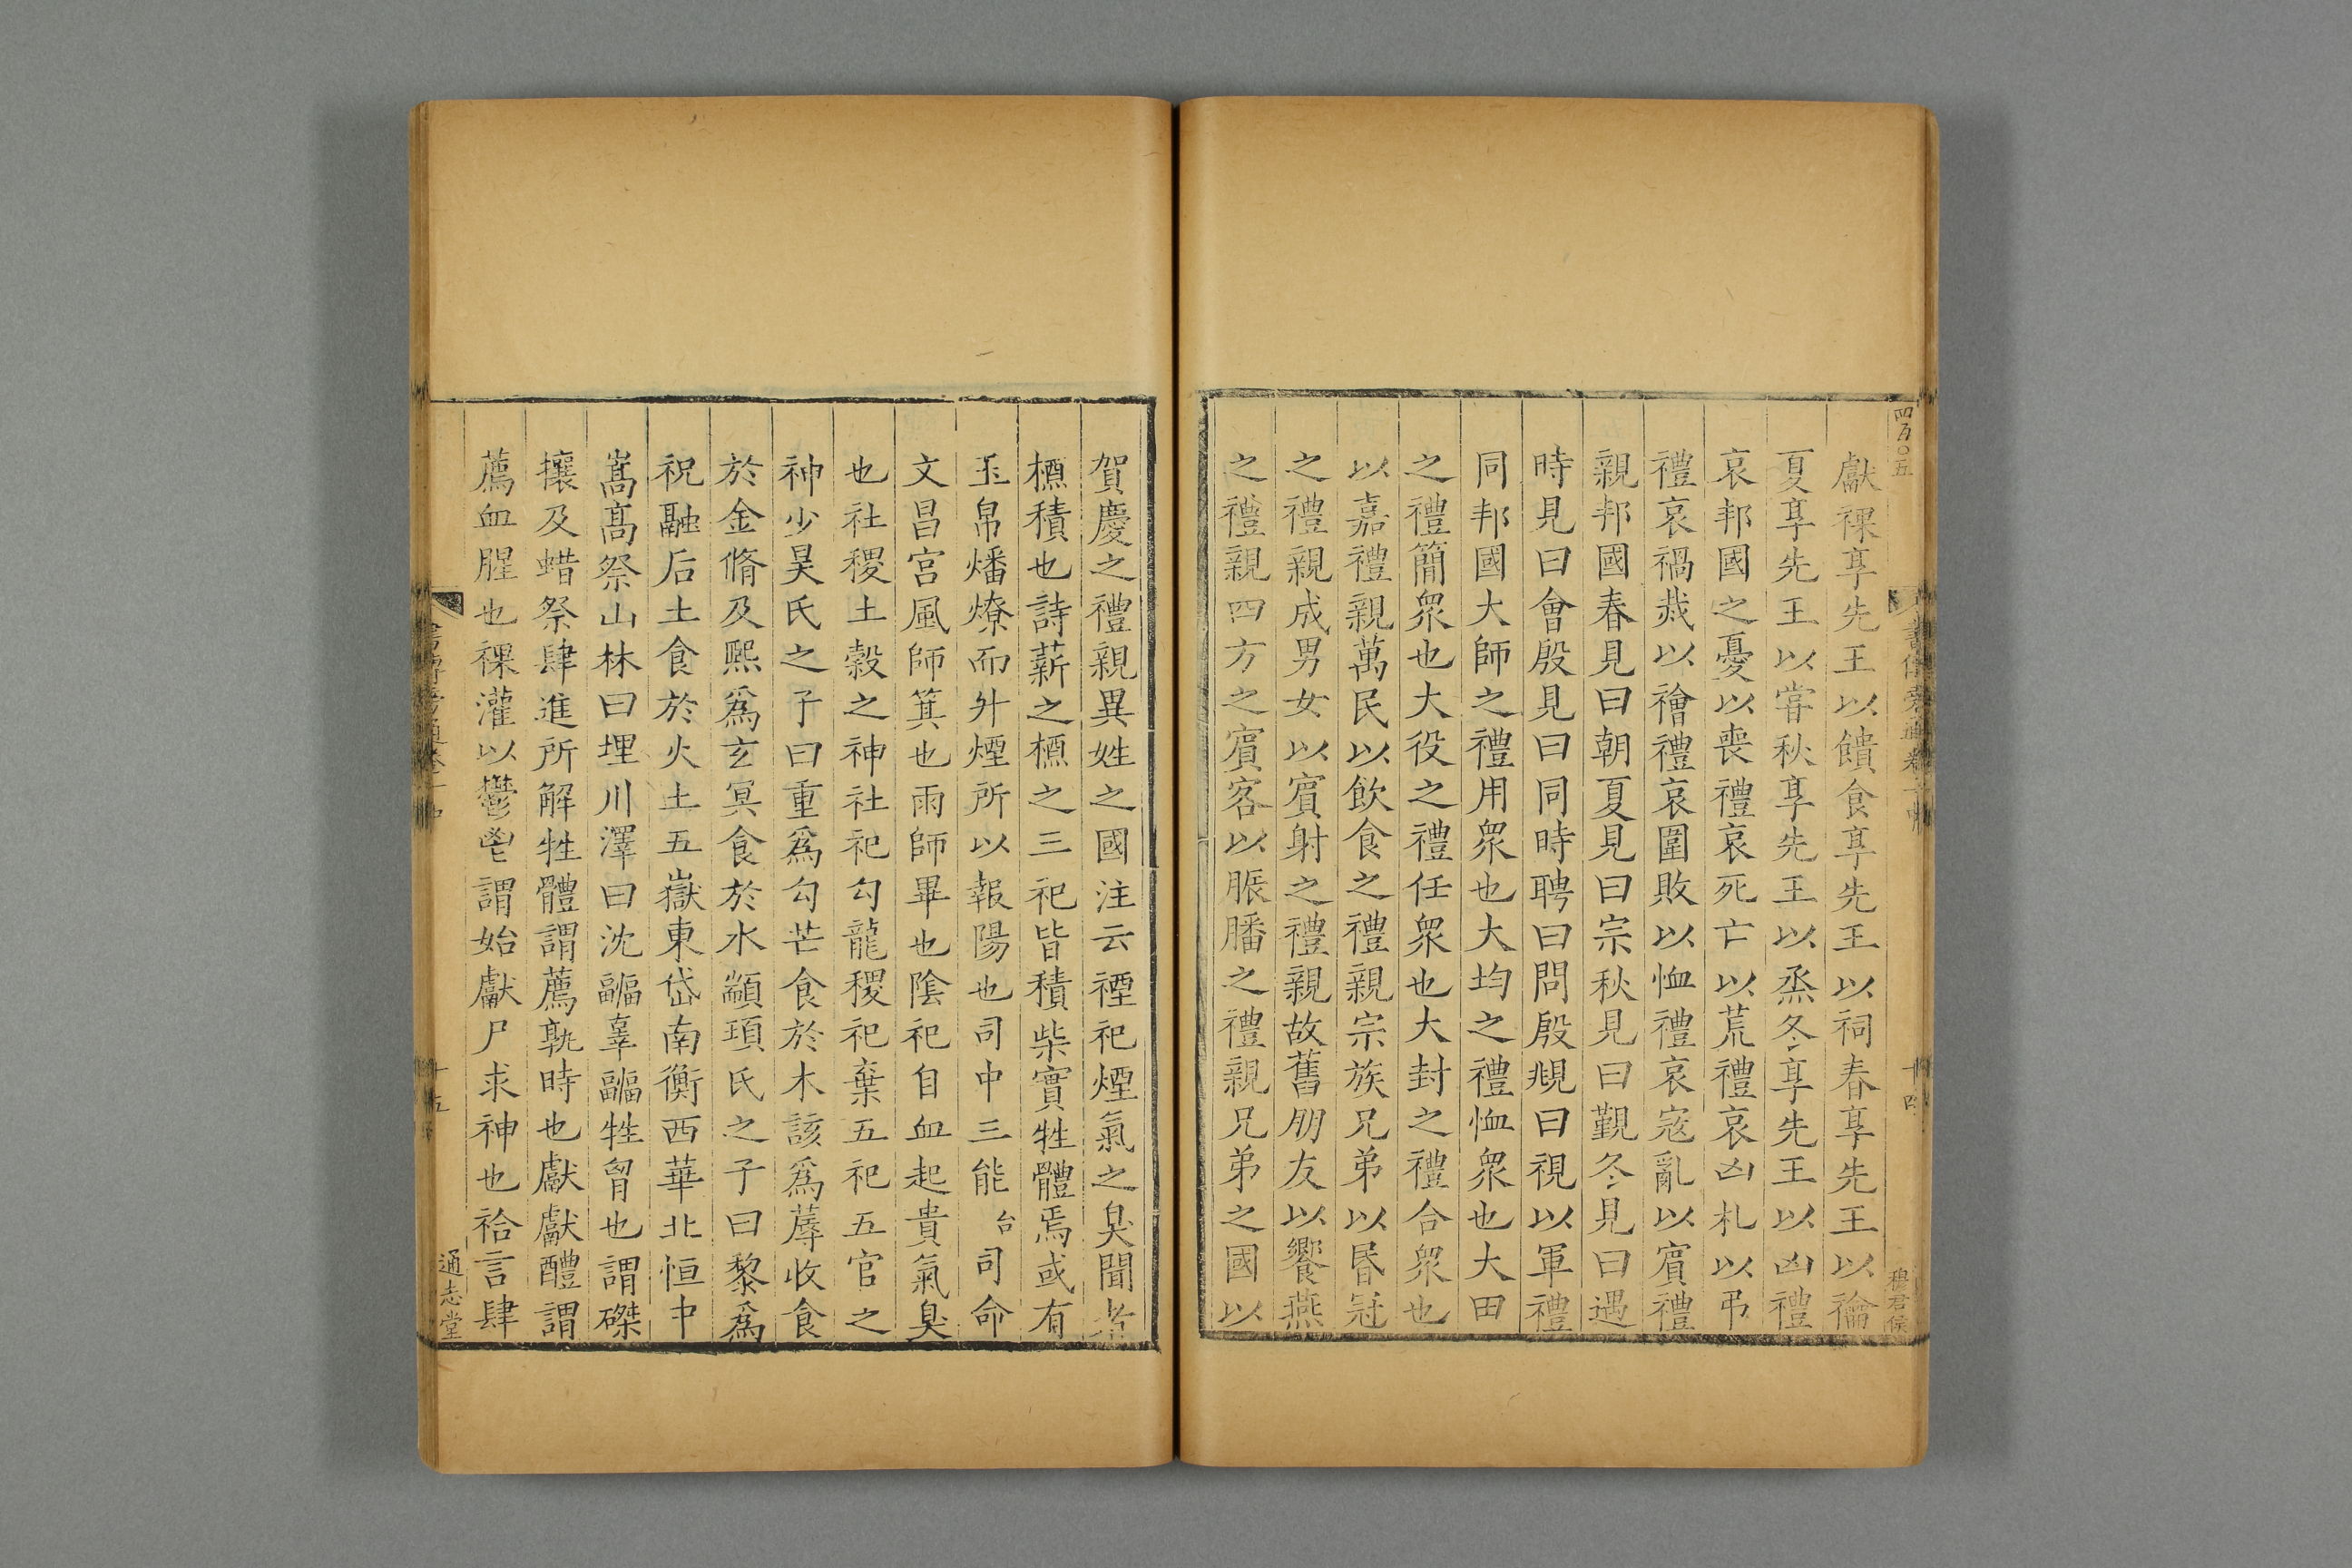 四五〇五
獻祼享先王以饋食享先王以祠春享先王以禴
夏享先王以嘗秋享先王以烝冬享先王以凶禮
哀邦國之憂以喪禮哀死亡以荒禮哀凶札以弔
禮哀禍烖以禬禮哀圍敗以恤禮哀寇亂以賔禮
親邦國春見曰朝夏見曰宗秋見曰覲冬見曰遇
時見曰會殷見曰同時聘曰問殷覜曰視以軍禮
同邦國大師之禮用衆也大均之禮恤衆也大田
之禮簡衆也大役之禮任衆也大封之禮合衆也
以嘉禮親萬民以飲食之禮親宗族兄弟以昏冠
之禮親成男女以賔射之禮親故舊朋友以饗燕
之禮親四方之賔客以脤膰之禮親兄弟之國以
書傳旁通卷一中
十四
穆君侯
賀慶之禮親異姓之國注云禋祀煙氣之臭聞者
槱積也詩薪之槱之三祀皆積柴實牲體焉或有
玉帛燔燎而升煙所以報陽也司中三能台司命
文昌宮風師箕也雨師畢也陰祀自血起貴氣臭
也社稷土榖之神社祀勾龍稷祀棄五祀五官之
神少昊氏之子曰重爲勾芒食於木該爲蓐收食
於金脩及熙爲玄冥食於水顓頊氏之子曰黎爲
祝融后土食於火土五嶽東岱南衡西華北恒中
嵩髙祭山林曰埋川澤曰沈疈辜疈牲胷也謂磔
攘及蜡祭肆進所解牲體謂薦孰時也獻獻醴謂
薦血腥也祼灌以鬱鬯謂始獻尸求神也祫言肆
書傳旁通卷一中
十五
通志堂